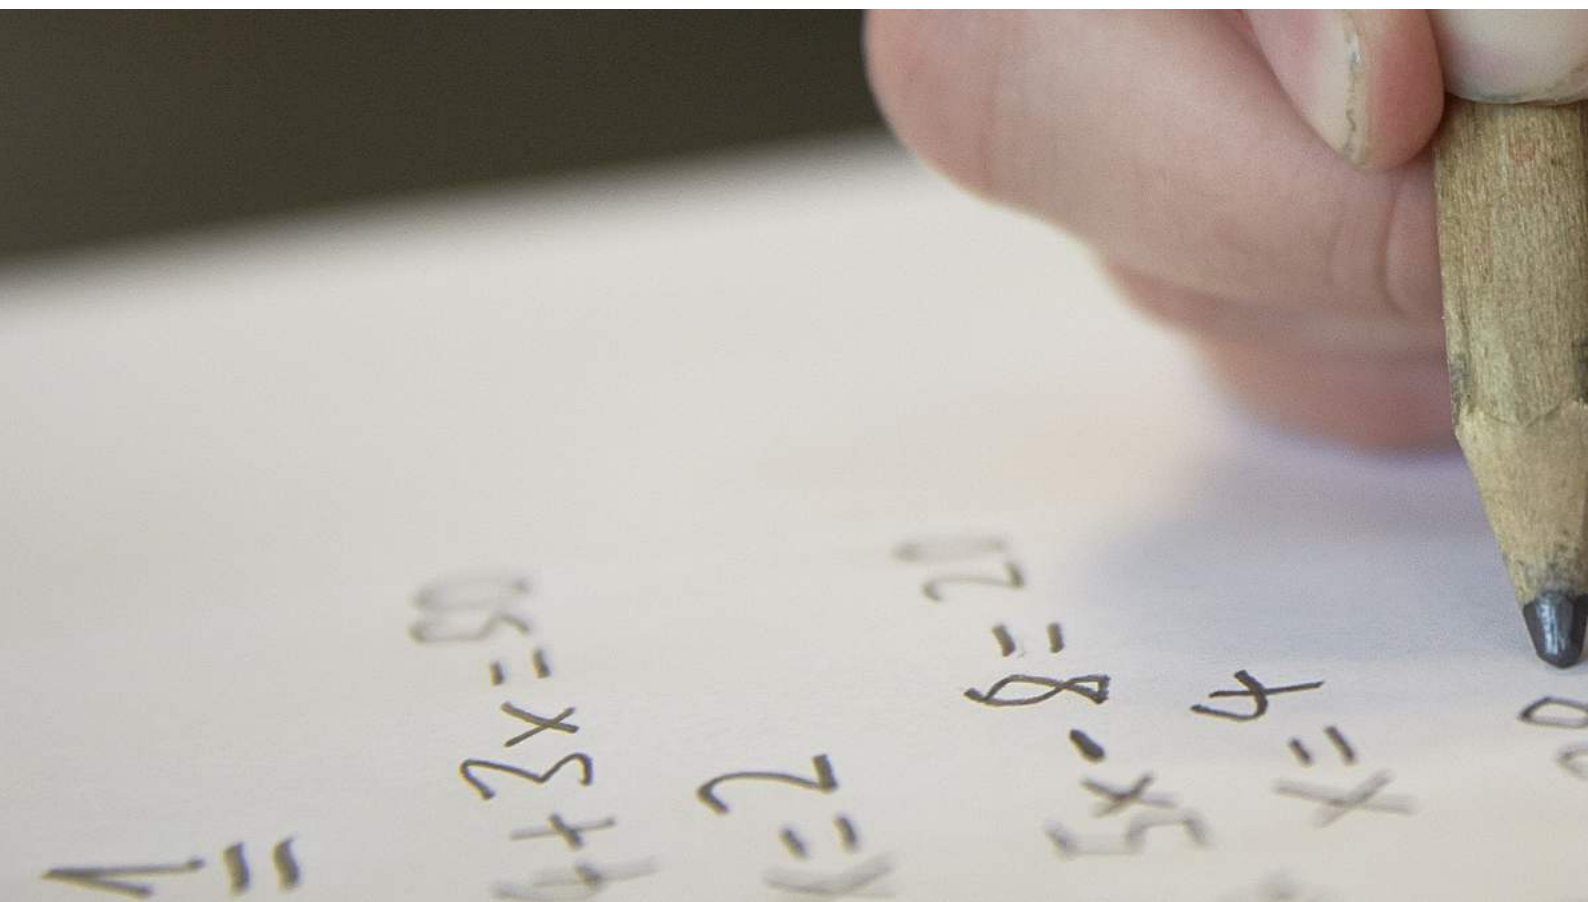 = 1
4+3x=50
x=2
5x·8=20
x=4